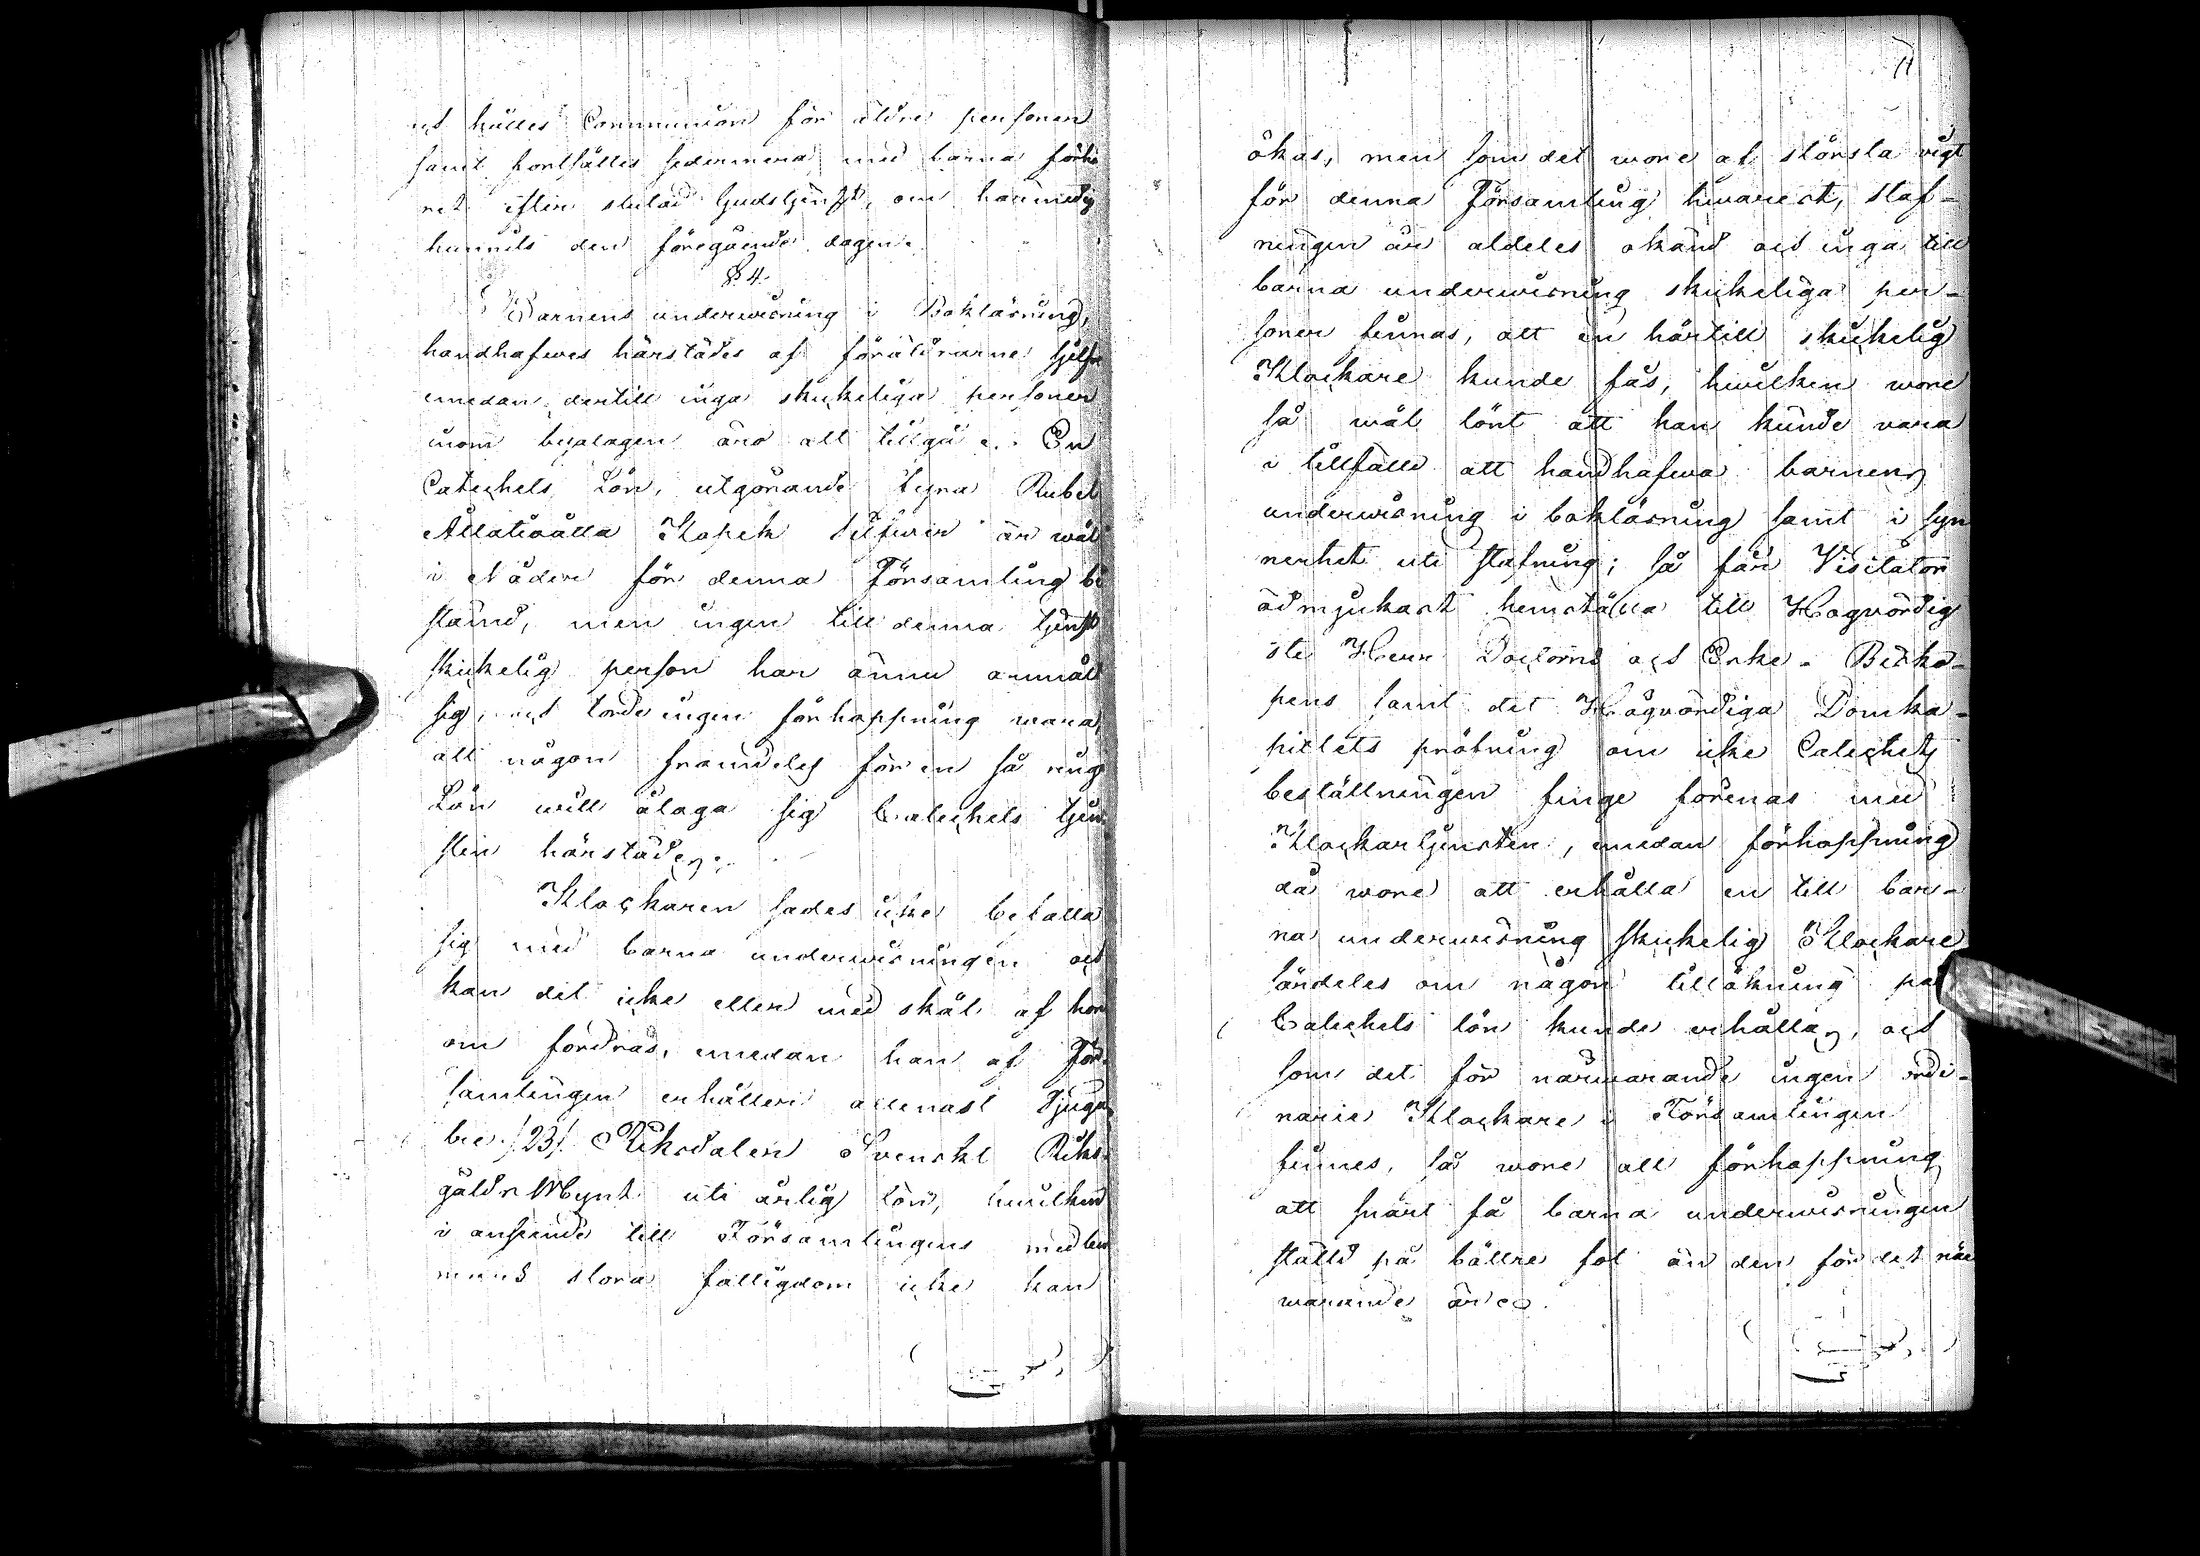 och hålles Communion för äldre personer
samt fortsättes sedermera med barna förhö
ret efter slutad Gudstjenst, om han med
hunnits den föregående dagen.
§ 4.
Barnens underwisning i Bokläsning,
handhafwes härstädes af föräldrarne sjelfve
emedan dertill inga skickeliga personer
inom byalagen äro att tillgå. En
Catechets Lön, utgörande fyra Rubel
Åttatioåtta Kopek Silfwer är wäl
i Nåder för denna Församling be
stämd, men ingen till denna tjenst
skickelig person har ännu anmält
sig, och torde ingen förhoppning wara,
att någon framdeles för en så ringa
Lön will åtaga sig Catechets tjen-
sten härstädes.
Klockaren sades icke befatta
sig med barna underwisningen och
kan det icke eller med skäl af hon
om fordras, emedan han af För-
samlingen erhåller allenast Tjugu
tre /:23:/ Riksdaler Svenskt Riks-
gälds Mynt uti årlig lön, hwilken
i anseende till Församlingens medlem
mars stora fattigdom icke kan
11
ökas, men som det wore af största wigt
för denna Församling hwarest, staf-
ningen är aldeles okänd och inga till
barna underwisning skickeliga per-
soner finnas, att en härtill skickelig
Klockare kunde fås, hwilken wore
så wäl lönt att han kunde vara
i tillfälle att handhafwa barnens
underwisning i bokläsning samt i syn
nerhet uti stafning; så får Visitator
ödmjukast hemställa till Högvördig
ste Herr Doctorns och Erke-Bisko-
pens samt det Högvördiga Domka-
pitlets pröfning om icke Catechets
beställningen finge förenas med
Klockartjensten, emedan förhoppning
då wore att erhålla en till bar-
na underwisning skickelig Klockare
särdeles om någon tillökning på
Catechets lön kunde erhållas, och
som det för närwarande ingen ordi-
narie Klockare i Församlingen
finnes, så wore all förhoppning
att snart få barna underwisningen
ställd på bättre fot än den för det när
warande är.